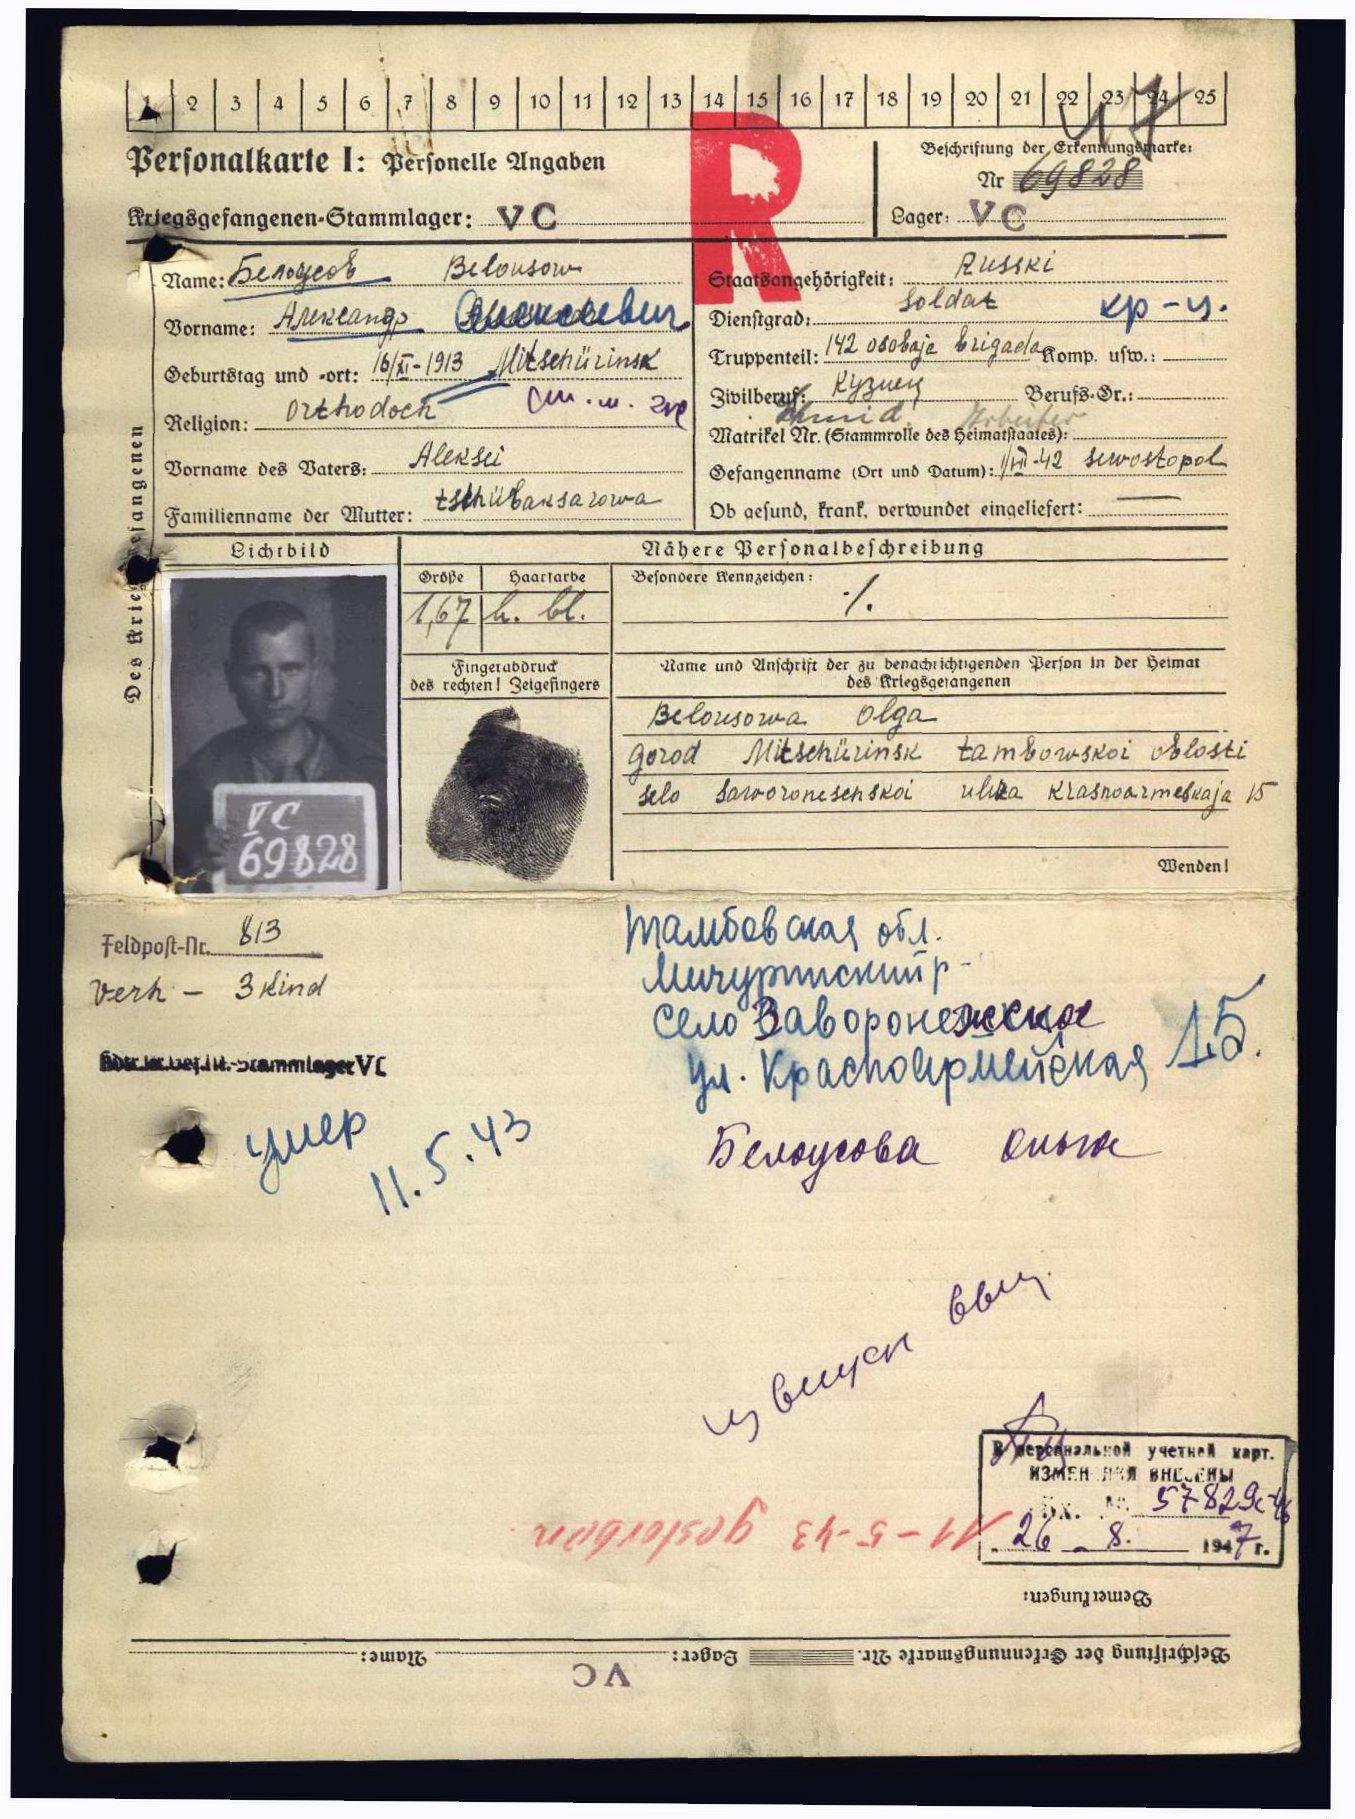 1 2 3 4 5 6 7 8 9 10 11 12 13 14 15 16 17 18 19 20 21 22 23 24 25
47
Personalkarte I: Personelle Angaben
Beschriftung der Erkennungsmarke:
Nr 69828
Kriegsgefangenen-Stammlager: VC
Lager: VC
R
Des Kriegsgefangenen
Name: Белоусов Belousow
Vorname: Александр Алексеевич
Geburtstag und -ort: 16/XI-1913 Mitschürinsk
Religion: Orthodoch
Vorname des Vaters: Aleksei
Familienname der Mutter: tschübaksarowa
Staatsangehörigkeit: Russki
Dienstgrad: Soldat кр-ц.
Truppenteil: 142 osobaja brigada Komp. usw.:
Zivilberuf: Кузнец Berufs-Gr.:
Schmid. Arbeiter
Matrikel Nr. (Stammrolle des Heimatstaates):
Gefangenname (Ort und Datum): 1/VII-42 sewostopol
Ob gesund, krank, verwundet eingeliefert: —
Lichtbild
Nähere Personalbeschreibung
Größe Haarfarbe Besondere Kennzeichen:
1,67 h. bl. ./.
Fingerabdruck
des rechten! Zeigefingers
Name und Anschrift der zu benachrichtigenden Person in der Heimat
des Kriegsgefangenen
Belousowa Olga
gorod Mitschürinsk tambowskoi oblosti
selo saworoneschskoi uliza krasnoarmeskaja 15
Wenden!
VC
69828
Feldpost-Nr. 813
Verh - 3 Kind
Тамбовская обл.
Мичуринский р-
село Заворонежское
ул. Красноармейская 15.
Белоусова Ольга
Stammlager VC
умер
11.5.43
В персональной учетной карт.
ИЗМЕНЕНИЯ ВНЕСЕНЫ
Вх. № 57829с-46
„26„ 8. 1947 г.
11-5-43 gestorben
Bemerkungen:
Beschriftung der Erkennungsmarke Nr. Lager: VC Name: